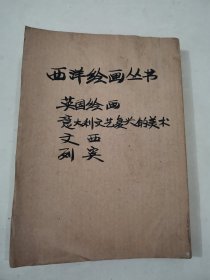 西洋绘画丛书
英国绘画
意大利文艺复兴的美术
文西
列宾